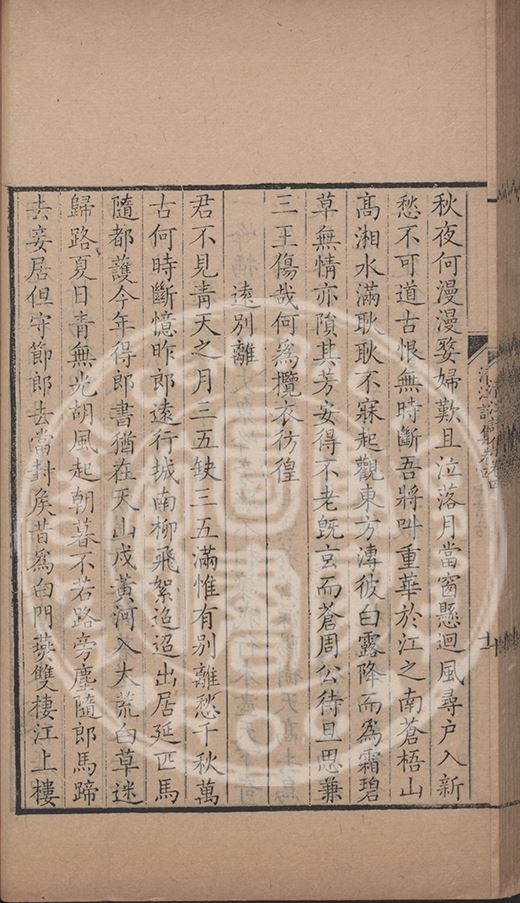 秋夜何漫漫嫠婦歎且泣落月當窗懸迴風尋户入新
愁不可道古恨無時斷吾將叫重華於江之南蒼梧山
高湘水滿耿耿不寐起觀東方漙彼白露降而爲霜碧
草無情亦隕其芳安得不老旣玄而蒼周公待旦思兼
三王傷哉何爲攬衣彷徨
遠別離
君不見靑天之月三五缺三五滿惟有別離愁千秋萬
古何時斷憶昨郎遠行城南柳飛絮迢迢出居延匹馬
隨都護今年得郎書猶在天山戍黃河入大荒白草迷
歸路夏日靑無光胡風起朝暮不若路旁塵隨郎馬蹄
去妾居但守節郎去當封矦昔爲白門燕雙棲江上樓
清江詩集卷四
十